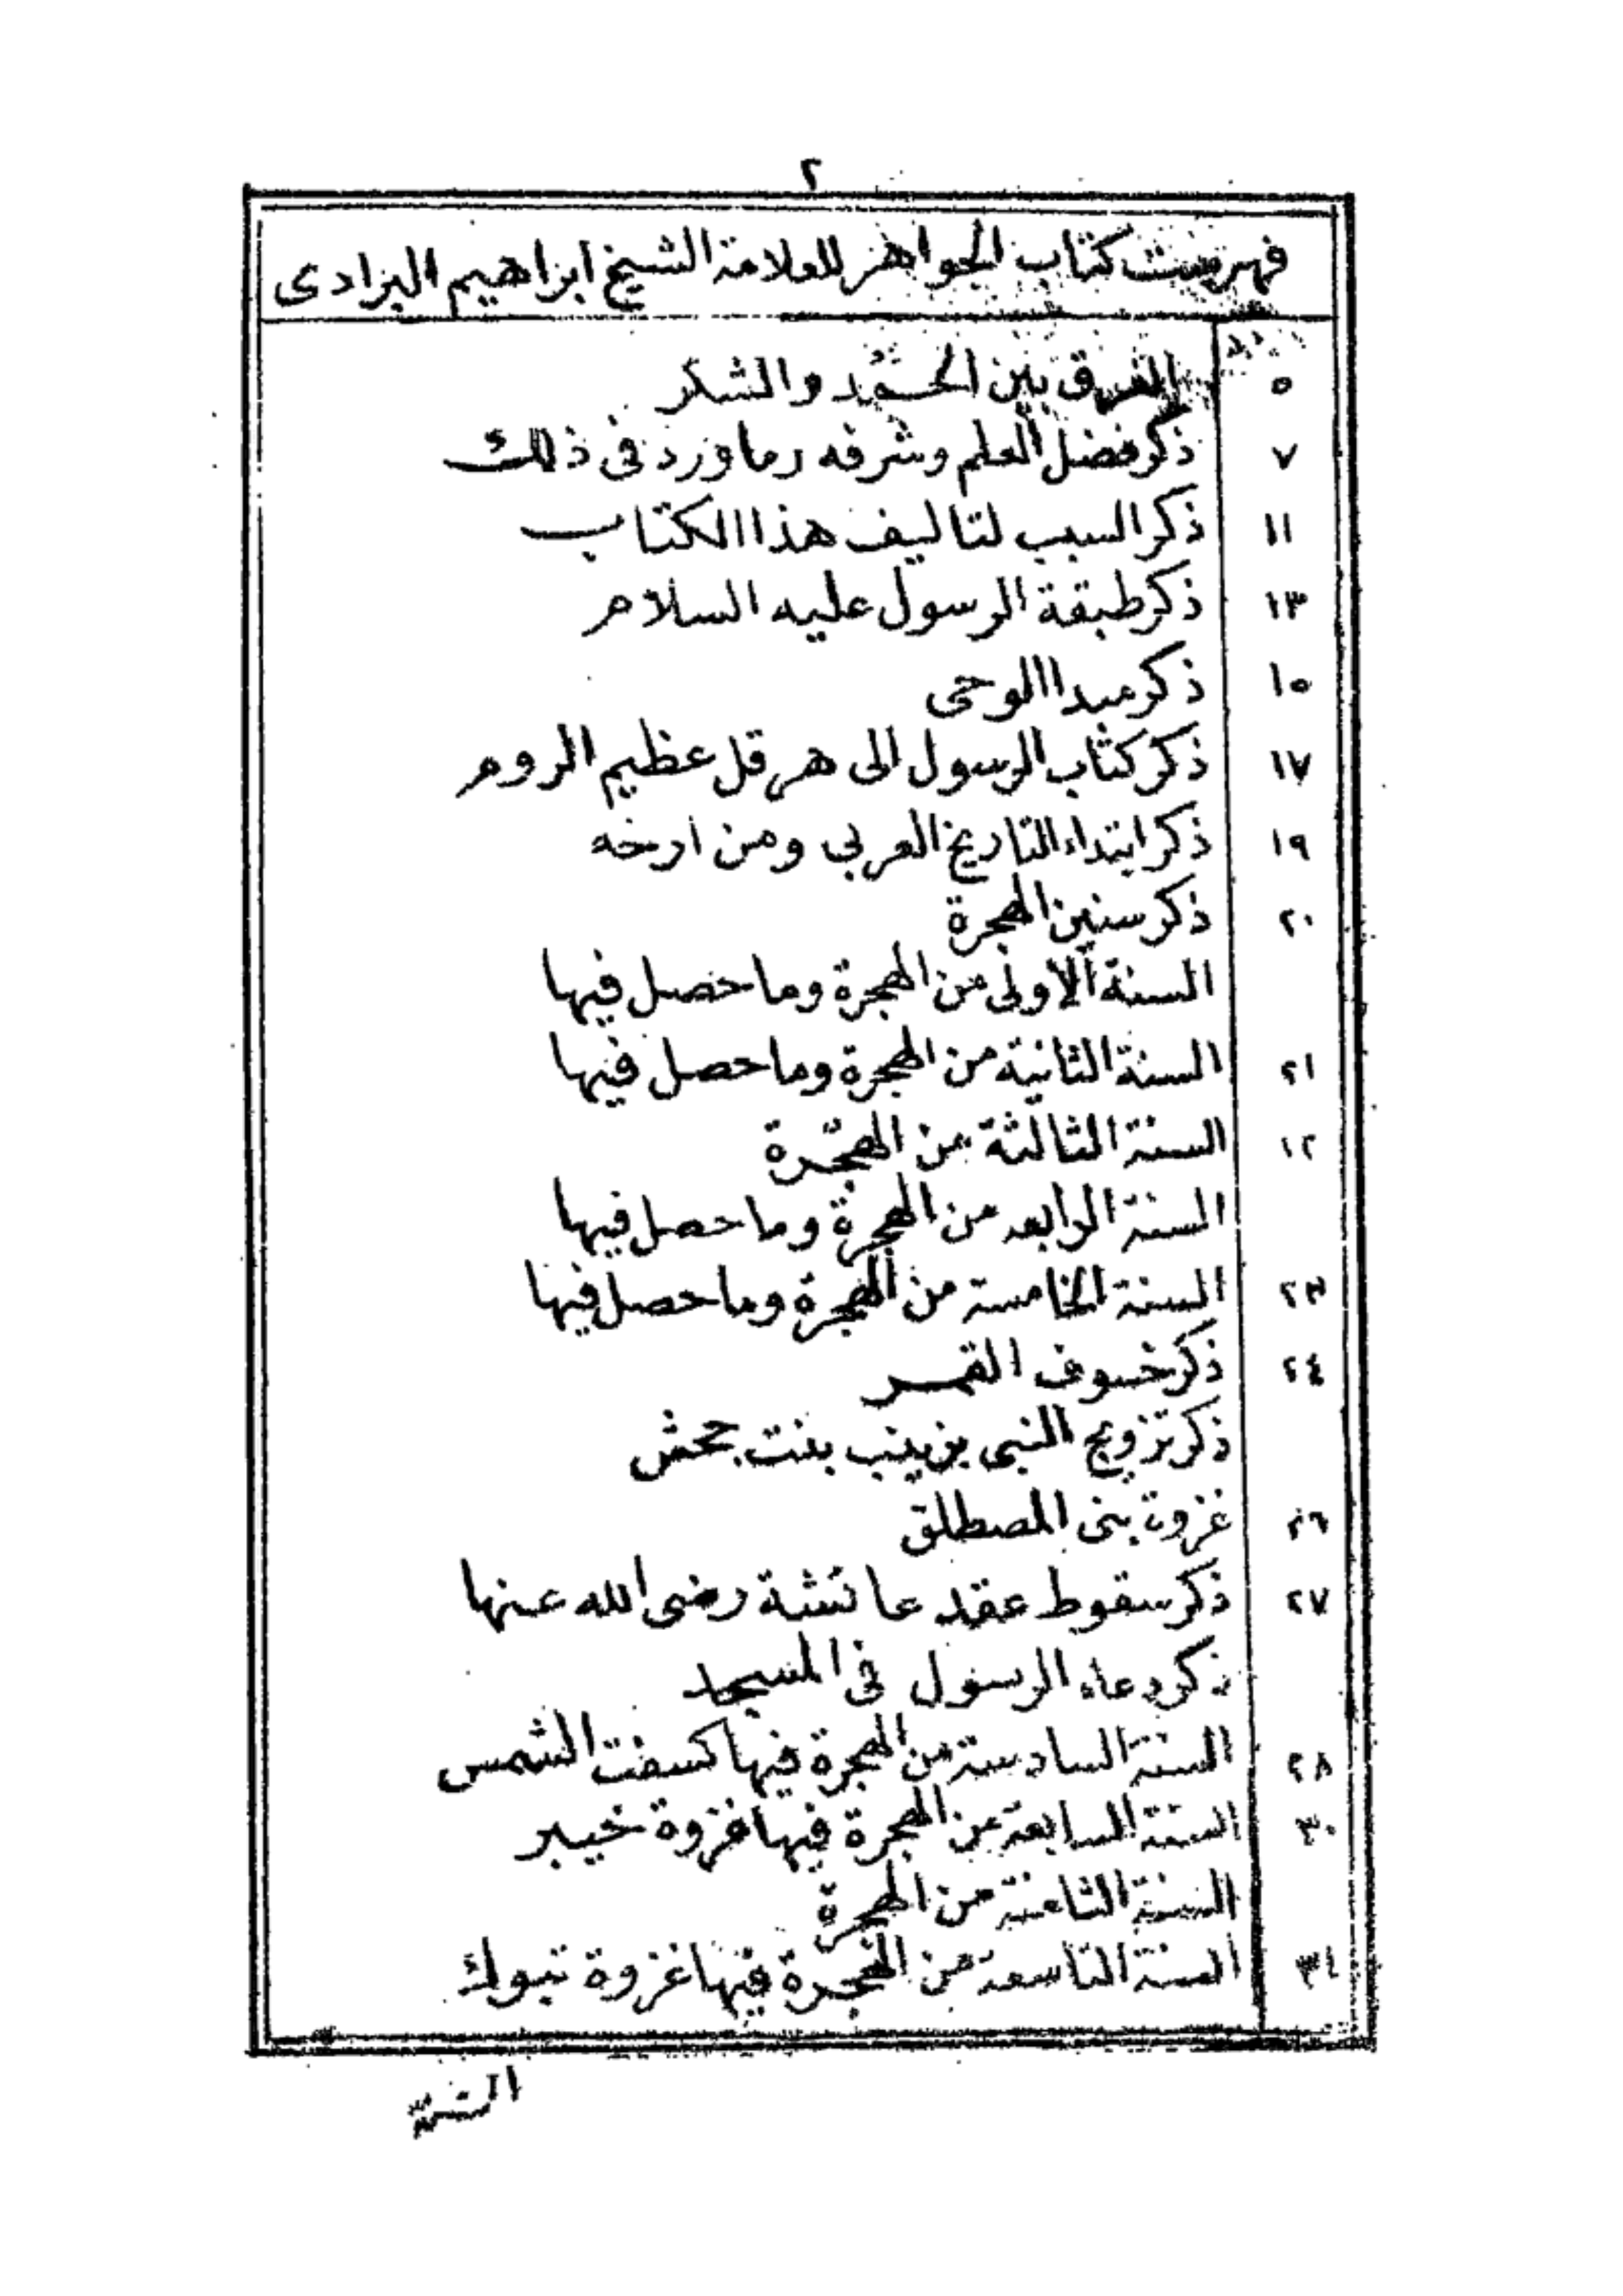 ٢
فهرست كتاب الجواهر للعلامة الشيخ ابراهيم البرادى
٥ الفرق بين الحمد والشكر
٧ ذكر فضل العلم وشرفه وما ورد فى ذلك
١١ ذكر السبب لتاليف هذا الكتاب
١٣ ذكر طبقة الرسول عليه السلام
١٥ ذكر مبدا الوحى
١٧ ذكر كتاب الرسول الى هرقل عظيم الروم
١٩ ذكر ابتداء التاريخ العربي ومن ارخه
٢٠ ذكر سنين الهجرة
السنة الأولى من الهجرة وما حصل فيها
٢١ السنة الثانية من الهجرة وما حصل فيها
١٢ السنة الثالثة من الهجرة
السنة الرابعه من الهجرة وما حصل فيها
٢٣ السنة الخامسة من الهجرة وما حصل فيها
٢٤ ذكر خسوف القمر
ذكر تزويج النبى بزينب بنت جحش
٢٦ غزوة بنى المصطلق
٢٧ ذكر سقوط عقد عائشة رضى الله عنها
ذكر دعاء الرسول فى المسجد
٢٨ السنة السادسة من الهجرة فيها كسفت الشمس
٣٠ السنة السابعة من الهجرة فيها غزوة خيبر
السنة الثامنة من الهجرة
السنة التاسعة من الهجرة فيها غزوة تبوك
السنة